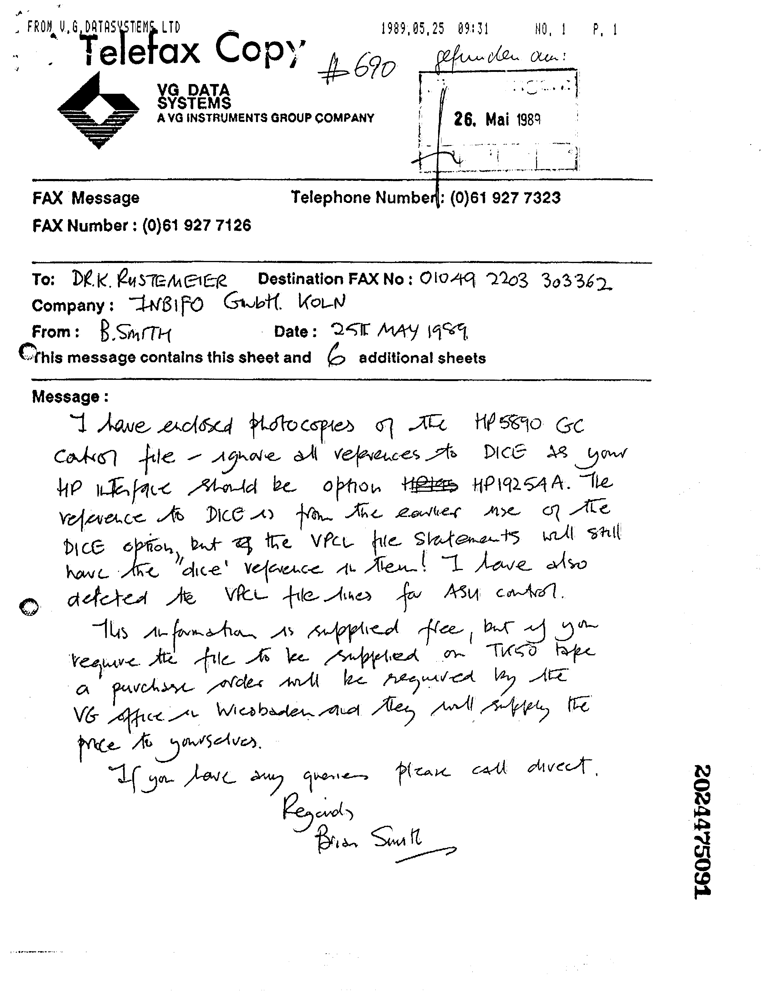 FROM V.G.DATASYSTEMS LTD 1989,05,25 09:31 NO. 1 P. 1
Telefax Copy
#690
gefunden am:
VG DATA
SYSTEMS
A VG INSTRUMENTS GROUP COMPANY
26. Mai 1989
FAX Message Telephone Number : (0)61 927 7323
FAX Number : (0)61 927 7126
To: DR.K. RUSTEMEIER Destination FAX No : 01049 2203 303362
Company : INBIFO GmbH. KOLN
From : B.SMITH Date : 25TH MAY 1989
This message contains this sheet and 6 additional sheets
Message :
I have enclosed photocopies of the HP5890 GC
Control file – ignore all references to DICE as your
HP interface should be option HP19254A. The
reference to DICE is from the earlier use of the
DICE option, but the VPCL file statements will still
have the "dice' reference in them! I have also
deleted the VPCL file lines for ASU control.
This information is supplied free, but if you
require the file to be supplied on TK50 tape
a purchase order will be required by the
VG office in Wiesbaden and they will supply the
price to yourselves.
If you have any queries please call direct.
Regards
Brian Smith
2024475091